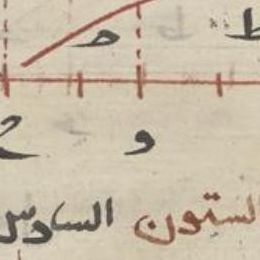 ط ح
و ح
الستون السادس